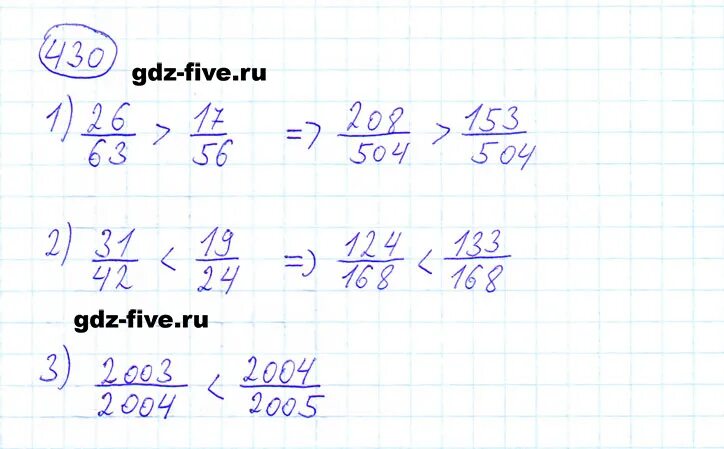 430
gdz-five.ru
1) 26/63 > 17/56 => 208/504 > 153/504
2) 31/42 < 19/24 => 124/168 < 133/168
gdz-five.ru
3) 2003/2004 < 2004/2005